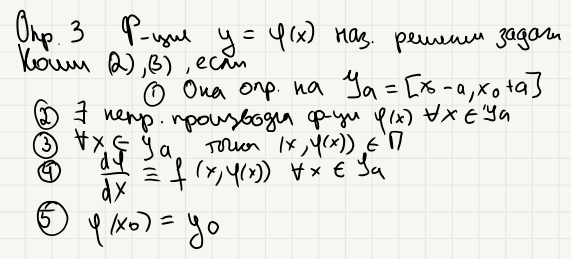 Опр. 3 Ф-ция y = φ(x) наз. решением задачи
Коши (2), (3), если
① Она опр. на Ja = [x₀ - a, x₀ + a]
② ∃ непр. производн ф-ци φ(x) ∀x ∈ Ja
③ ∀x ∈ Ja точка (x, φ(x)) ∈ П
④ dφ/dx ≡ f(x, φ(x)) ∀x ∈ Ja
⑤ φ(x₀) = y₀